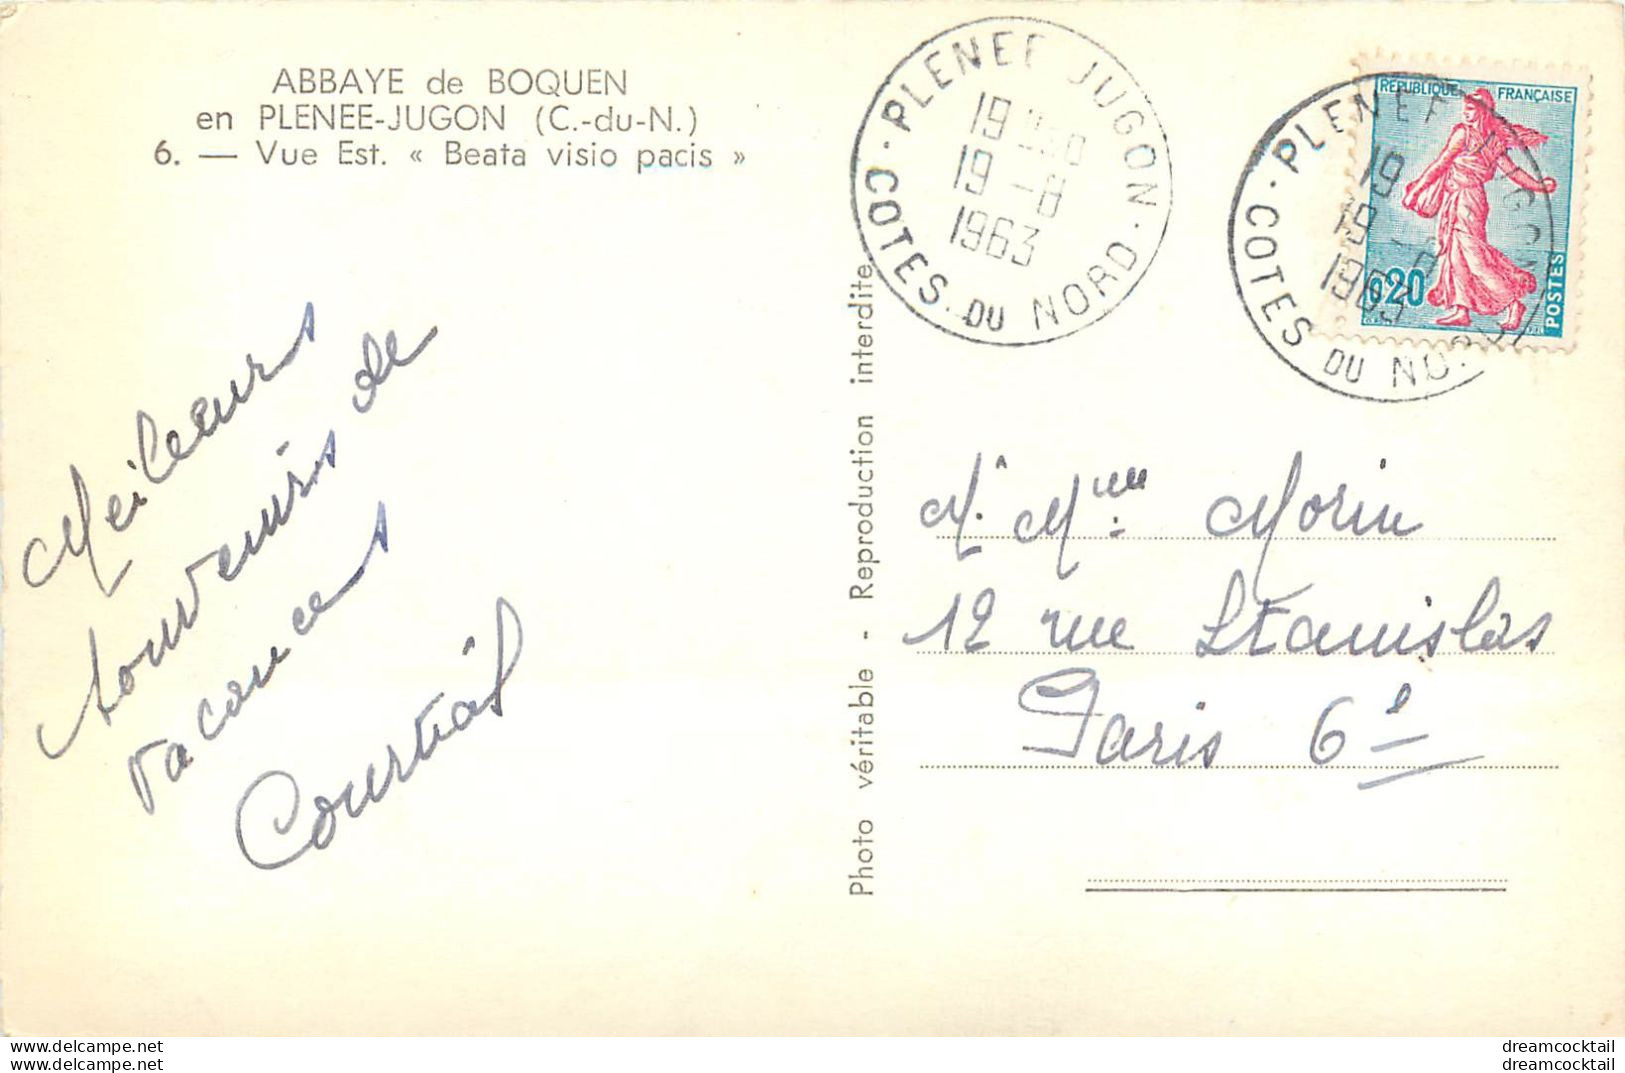 ABBAYE de BOQUEN
en PLENEE-JUGON (C.-du-N.)
6. — Vue Est. « Beata visio pacis »
Meileurs
souvenirs de
vacances
Courtial
Photo véritable - Reproduction interdite
PLENEE JUGON
19
19 -8
1963
COTES DU NORD
REPUBLIQUE FRANÇAISE
0,20
POSTES
PLENEE JUGON
19
19 -8
1963
COTES DU NORD
Mr Mme Morin
12 rue Stanislas
Paris 6e
www.delcampe.net
dreamcocktail
www.delcampe.net
dreamcocktail